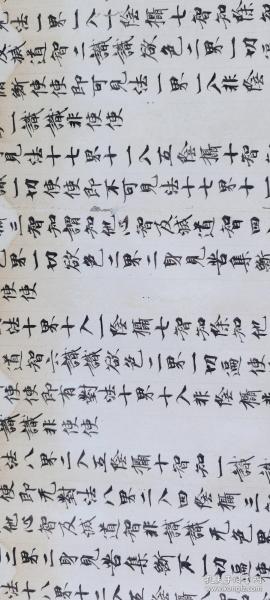 法一界一入一陰攝七智知除知
及滅道智二識識欲色二界一切
斷使使即可見法一界一入非陰
一識識非使使
見法十七界十一入五陰攝十智
一切使使即不可見法十七界十一
三智知謂知他心智及滅道智四
界一切欲色二界二身見苦集斷
使使
法十界十入一陰攝七智知除知他
道智六識識欲色二界一切遍使
使使即有對法十界十入非陰攝
識識非使使
法八界二入五陰攝十智知一識識
使即无對法八界二入四陰攝三
他心智及滅道智非識識无色界
二界二身見苦集斷不一切遍使
法十八界十二入五陰攝十智知